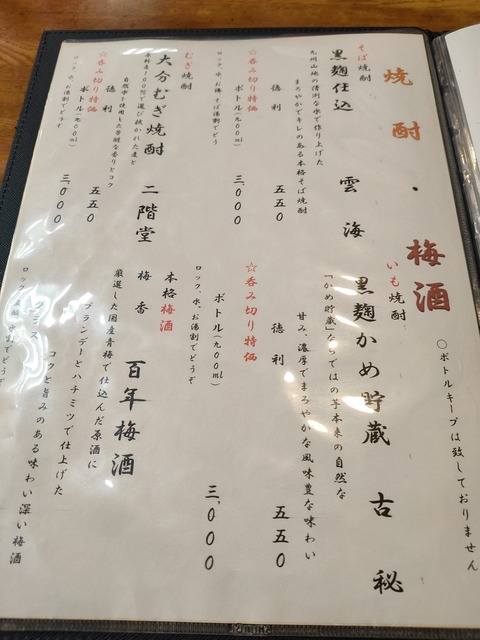 焼酎・梅酒
○ボトルキープは致しておりません
そば焼酎
黒麹仕込 雲海
九州山地の清冽な水で作り上げた
まろやかでキレのある本格そば焼酎
徳利 五五〇
☆呑み切り特価
ボトル(九〇〇ml) 三、〇〇〇
ロック、水、お湯、そば湯割でどうぞ
むぎ焼酎
大分むぎ焼酎 二階堂
原料麦100%、選び抜かれた麦と
自然水を使用した芳醇な香りとコク
徳利 五五〇
☆呑み切り特価
ボトル(九〇〇ml) 三、〇〇〇
ロック、水、お湯割でどうぞ
いも焼酎
黒麹かめ貯蔵 古秘
「かめ貯蔵」ならではの芋本来の自然な
甘み、濃厚でまろやかな風味豊な味わい
徳利 五五〇
☆呑み切り特価
ボトル(九〇〇ml) 三、〇〇〇
ロック、水、お湯割でどうぞ
本格梅酒
梅香 百年梅酒
厳選した国産青梅で仕込んだ原酒に
ブランデーとハチミツで仕上げた
コクと旨みのある味わい深い梅酒
グラス
ロック、水割でどうぞ